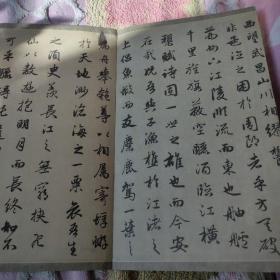 西望武昌山川相繆
非孟德之困於周郎者乎方其破
荊州下江陵順流而東也舳艫
千里旌旗蔽空釃酒臨江橫
槊賦詩固一世之雄也而今安
在哉況吾與子漁樵於江渚之
上侶魚蝦而友麋鹿駕一葉之
扁舟舉匏樽以相屬寄蜉蝣
於天地渺滄海之一粟哀吾生
之須臾羨長江之無窮挾飛
仙以遨遊抱明月而長終知不
可乎驟得託遺